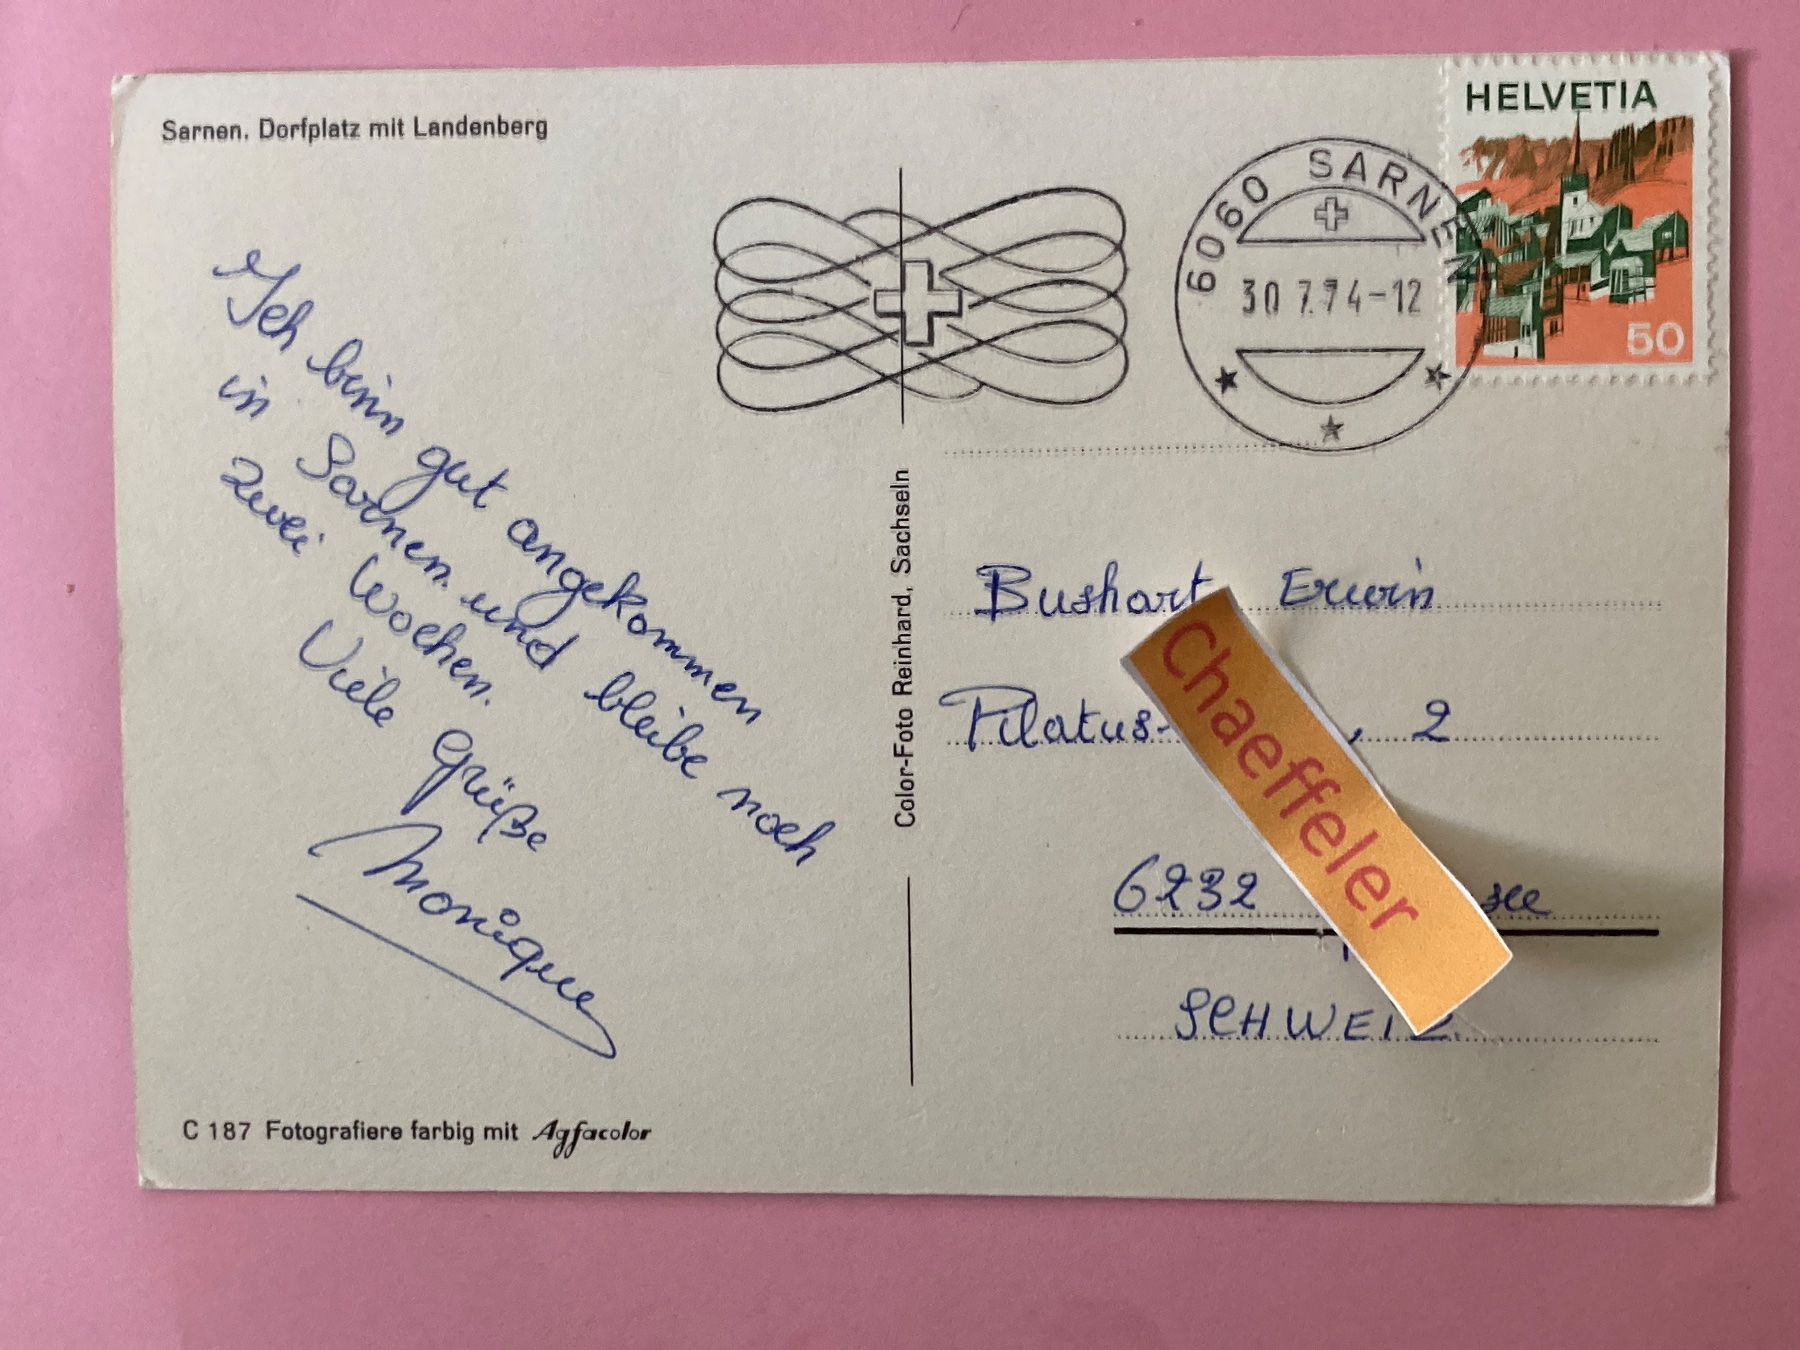 Sarnen. Dorfplatz mit Landenberg
HELVETIA
50
6060 SARNE
30 7.74-12
Ich binn gut angekommen
in Sarnen und bleibe noch
zwei Wochen.
Viele Grüße
Monique
Color-Foto Reinhard, Sachseln
Bushart Erwin
Pilatus- , 2
6232 see
SCHWEIZ.
Chaeffeler
C 187 Fotografiere farbig mit Agfacolor